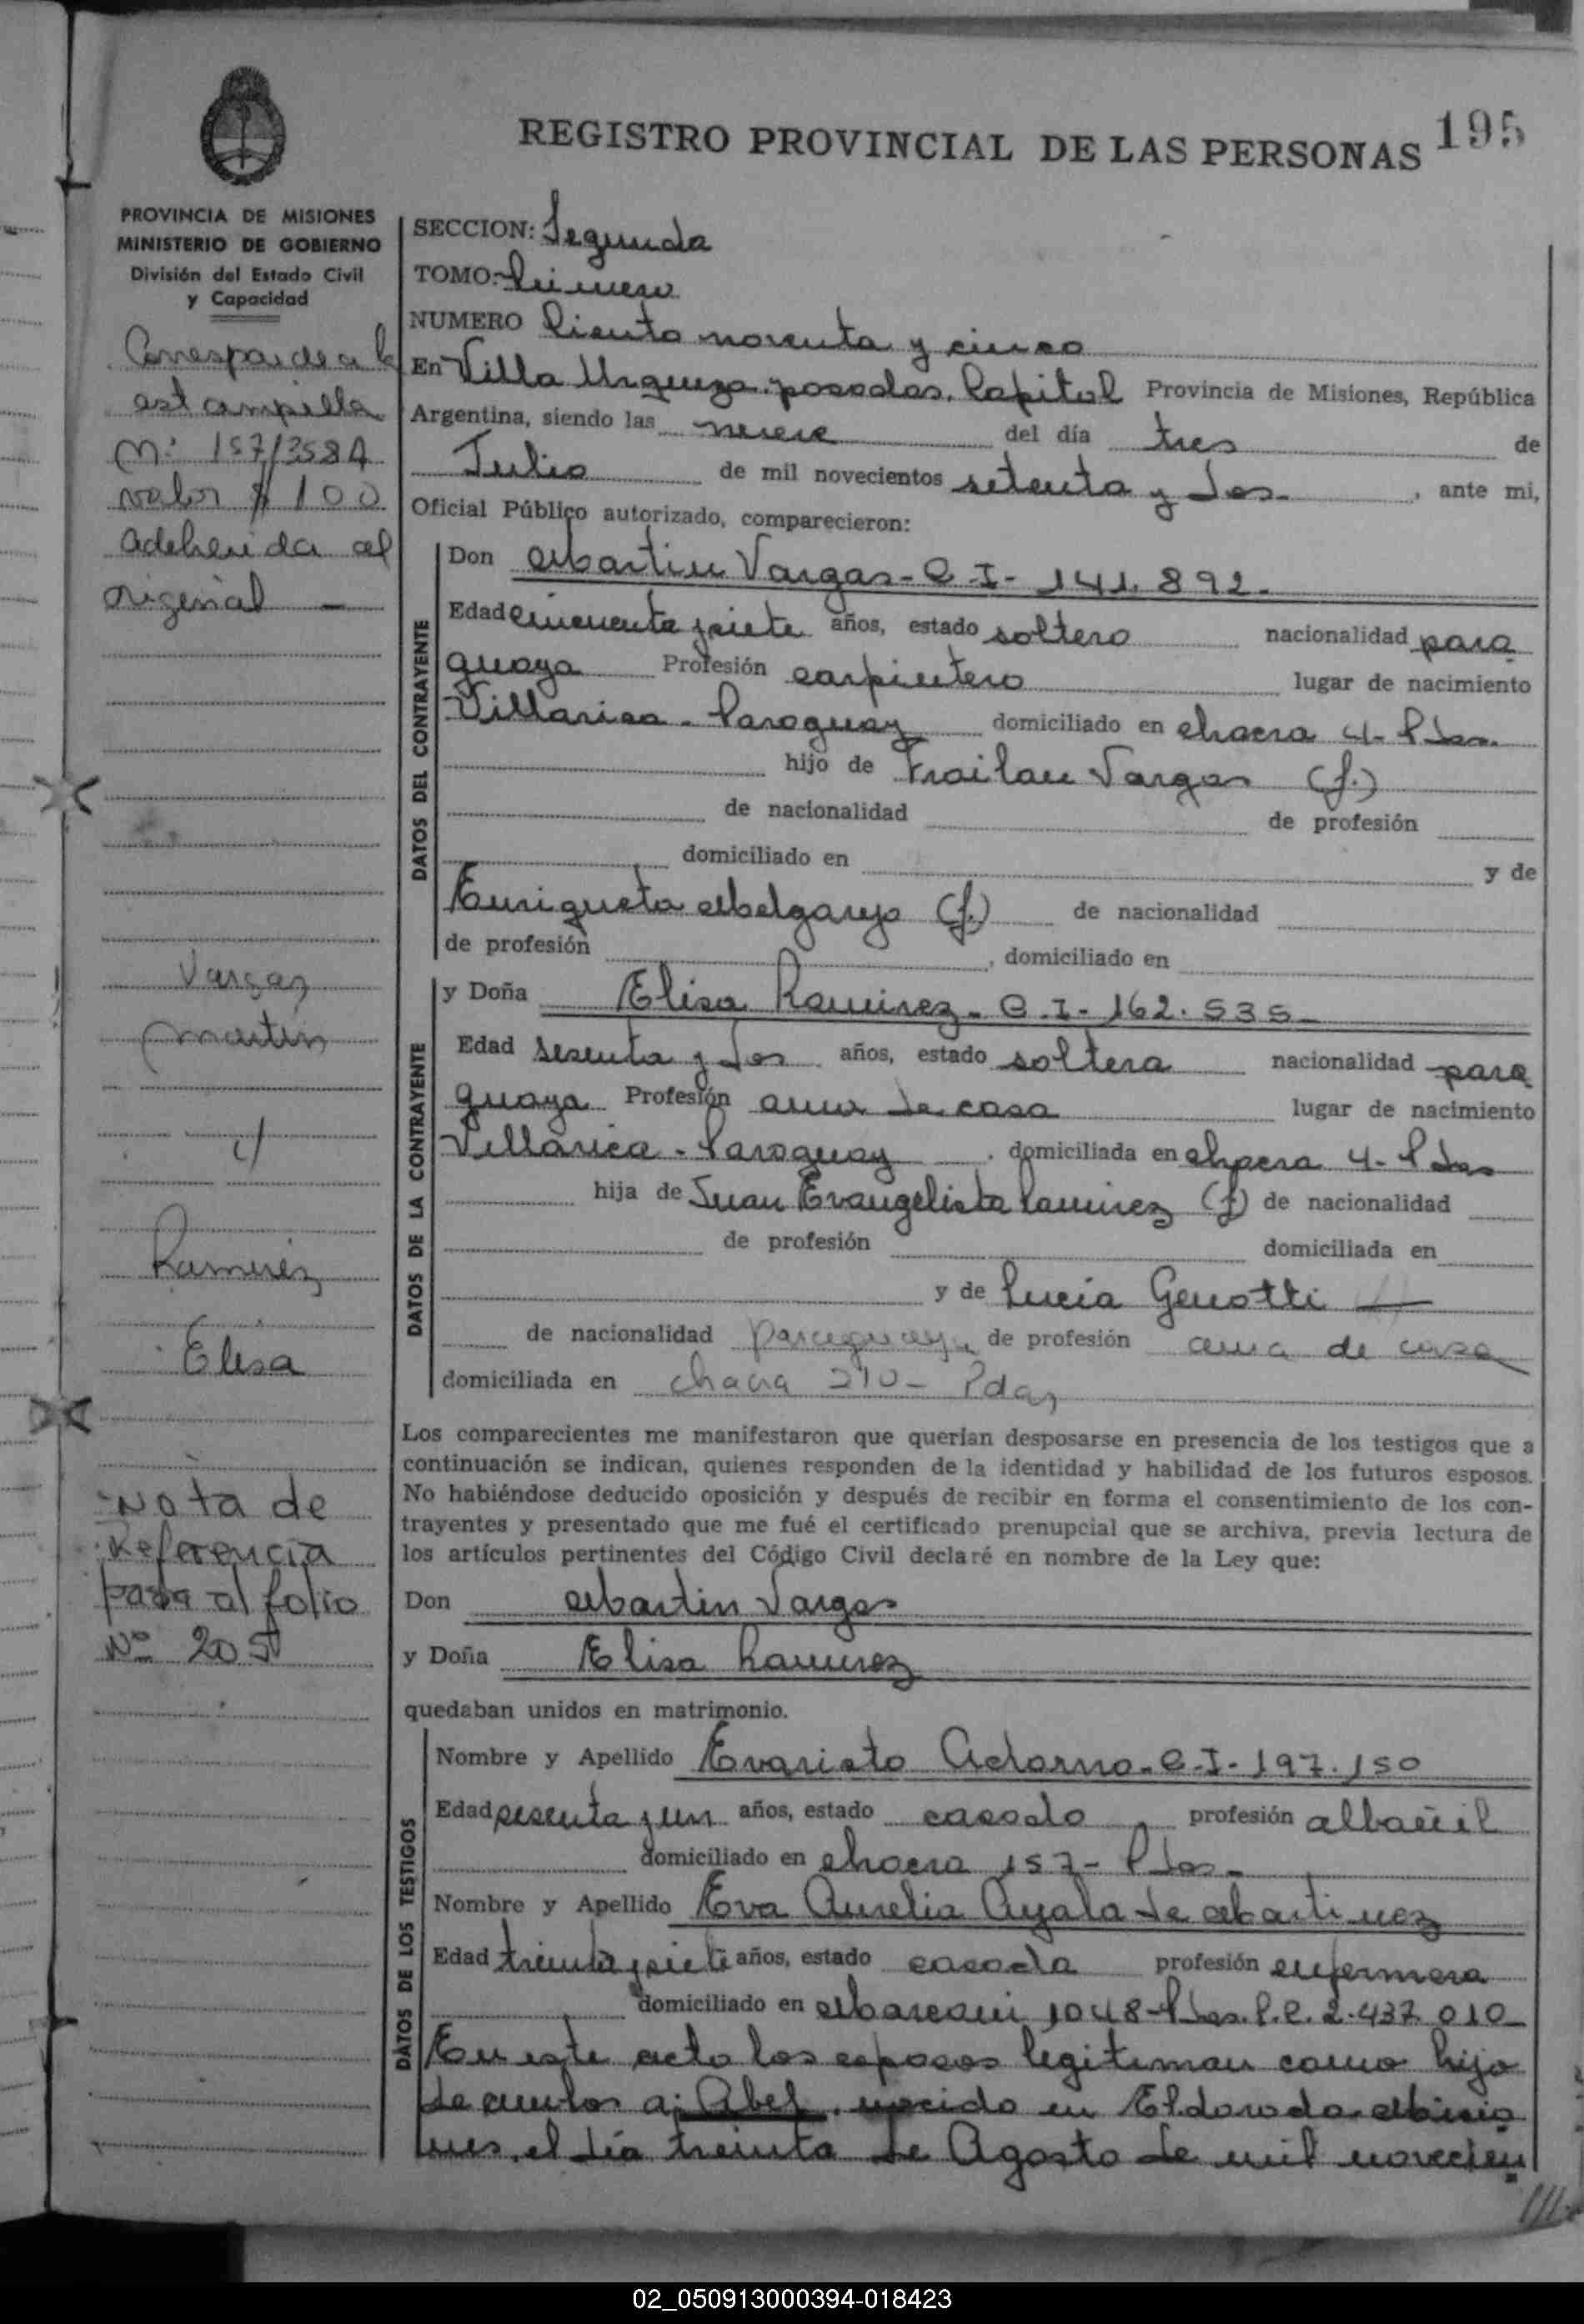 REGISTRO PROVINCIAL DE LAS PERSONAS 195
PROVINCIA DE MISIONES
MINISTERIO DE GOBIERNO
División del Estado Civil
y Capacidad
Corresponde a la
estampilla
Nº 157/3584
valor $ 100
adeherida al
original —
Vargas
Martín
c/
Ramirez
Elisa
Nota de
Referencia
pasa al folio
Nº 205
SECCION: Segunda
TOMO: Primero
NUMERO Ciento noventa y cinco
En Villa Urquiza, posadas, Capital Provincia de Misiones, República
Argentina, siendo las nueve del día tres de
Julio de mil novecientos setenta y dos- , ante mi,
Oficial Público autorizado, comparecieron:
DATOS DEL CONTRAYENTE
Don Martin Vargas - C.I- 141.892.
Edad cincuenta y siete años, estado soltero nacionalidad para
guaya Profesión carpintero lugar de nacimiento
Villarica - Paraguay domiciliado en chacra 4- Pdas.
hijo de Froilan Vargas (f.)
de nacionalidad de profesión
domiciliado en y de
Enriqueta Melgarejo (f.) de nacionalidad
de profesión , domiciliado en
DATOS DE LA CONTRAYENTE
y Doña Elisa Ramirez - C.I- 162.535-
Edad sesenta y dos años, estado soltera nacionalidad para
guaya Profesión ama de casa lugar de nacimiento
Villarica - Paraguay . domiciliada en chacra 4- Pdas
hija de Juan Evangelista Ramirez (f) de nacionalidad
de profesión domiciliada en
y de Lucia Genotti —
de nacionalidad paraguaya de profesión ama de casa
domiciliada en chacra 210 - Pdas
Los comparecientes me manifestaron que querían desposarse en presencia de los testigos que a
continuación se indican, quienes responden de la identidad y habilidad de los futuros esposos.
No habiéndose deducido oposición y después de recibir en forma el consentimiento de los con-
trayentes y presentado que me fué el certificado prenupcial que se archiva, previa lectura de
los artículos pertinentes del Código Civil declaré en nombre de la Ley que:
Don Martin Vargas
y Doña Elisa Ramirez
quedaban unidos en matrimonio.
DATOS DE LOS TESTIGOS
Nombre y Apellido Evaristo Adorno - C.I- 197.150
Edad sesenta y un años, estado casado profesión albañil
domiciliado en chacra 157- Pdas-
Nombre y Apellido Eva Aurelia Ayala de Martinez
Edad treinta y siete años, estado casada profesión enfermera
domiciliado en Marconi 1048- Pdas. L.C. 2.437.010
En este acto los esposos legitiman como hijo
de ambos a: Abel, nacido en Eldorado - Misio
nes, el día treinta de Agosto de mil novecien
///.
02_050913000394-018423